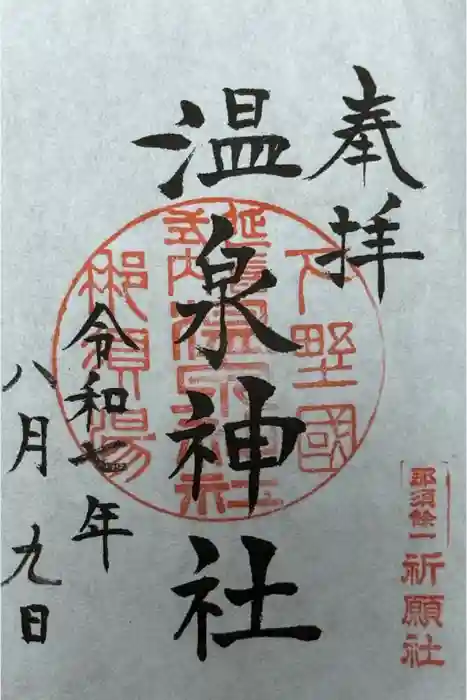 奉拝
下野國
延喜式内
温泉神社
温泉神社
那須湯
令和七年
八月九日
那須餘一
祈願社